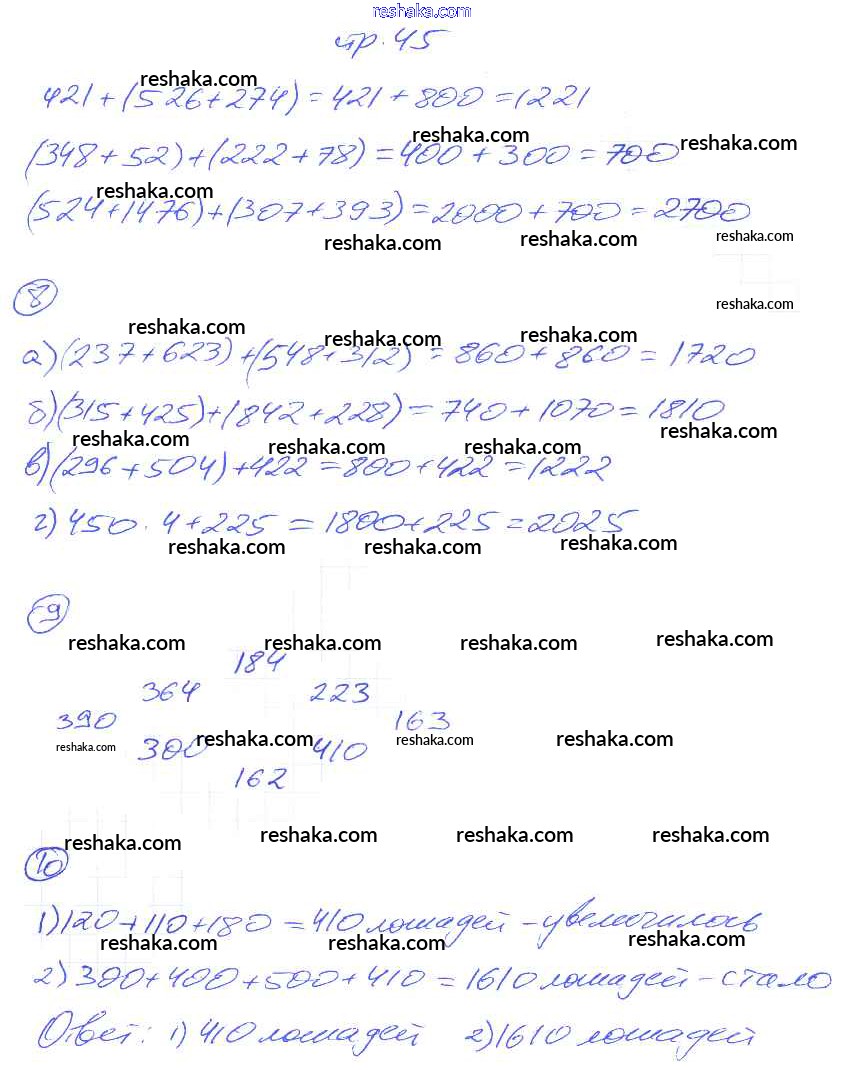 reshaka.com
стр. 45
reshaka.com
421+(526+274)=421+800=1221
reshaka.com reshaka.com
(348+52)+(222+78)=400+300=700
reshaka.com
(524+1476)+(307+393)=2000+700=2700
reshaka.com reshaka.com reshaka.com
8
reshaka.com
reshaka.com reshaka.com reshaka.com
а)(237+623)+(548+312)=860+860=1720
б)(315+425)+(842+228)=740+1070=1810
reshaka.com reshaka.com reshaka.com reshaka.com
в)(296+504)+422=800+422=1222
г)450·4+225=1800+225=2025
reshaka.com reshaka.com reshaka.com
9
reshaka.com reshaka.com reshaka.com reshaka.com
184
364 223
390 163
reshaka.com reshaka.com reshaka.com reshaka.com
300 410
162
reshaka.com reshaka.com reshaka.com reshaka.com
10
1)120+110+180=410 лошадей-увеличилось
reshaka.com reshaka.com reshaka.com
2)300+400+500+410=1610 лошадей-стало
Ответ: 1)410 лошадей 2)1610 лошадей